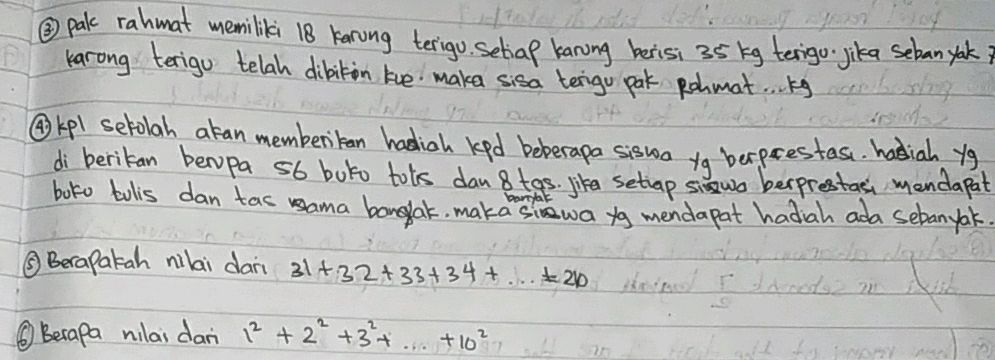 ③ pak rahmat memiliki 18 karung terigu. Setiap karung berisi 35 kg terigu. jika sebanyak 7
karong terigu telah dibikin kue. maka sisa terigu pak Rahmat ... kg
④ kpl sekolah akan memberikan hadiah kpd beberapa siswa yg berprestasi. hadiah yg
di berikan berupa 56 buku tulis dan 8 tas. jika setiap siswa berprestasi mendapat
buku tulis dan tas sama banyak. maka banyak siswa yg mendapat hadiah ada sebanyak.
⑤ Berapakah nilai dari 31 + 32 + 33 + 34 + ... +
⑥ Berapa nilai dari 1² + 2² + 3² + ... + 10²